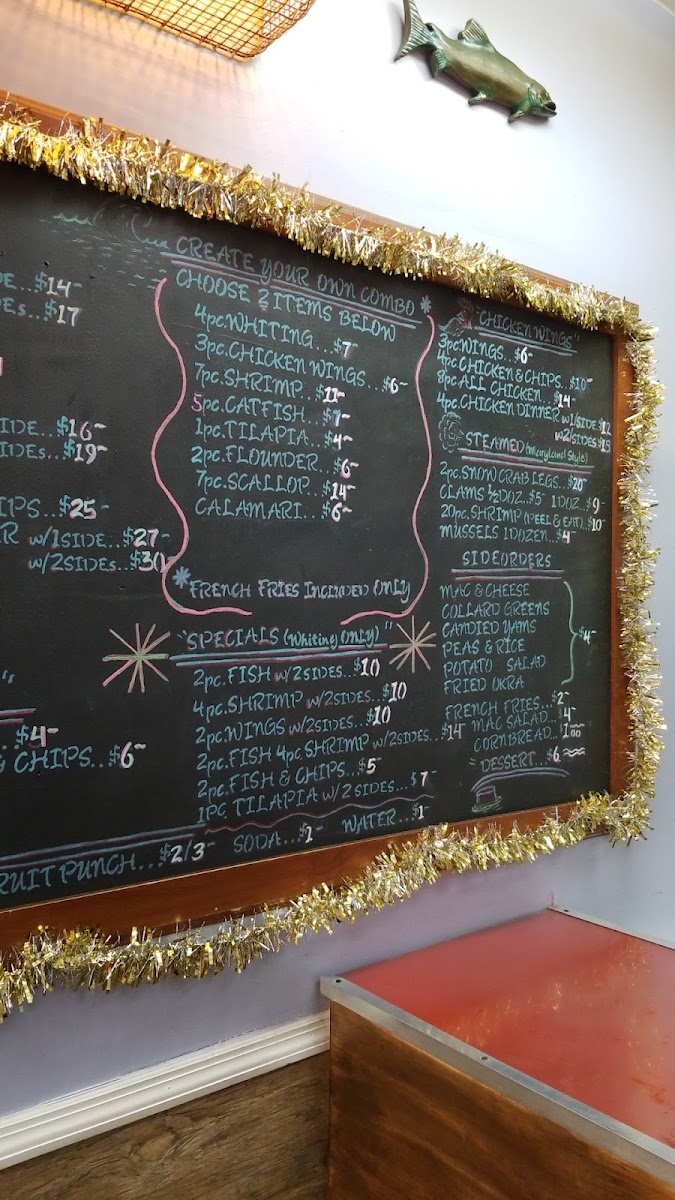 DE...$14
DES...$17
SIDE...$16
SIDES...$19
IPS...$25
R w/1SIDE...$27
w/2SIDES...$30
"
$4
& CHIPS...$6
RUIT PUNCH...$2/3
CREATE YOUR OWN COMBO
CHOOSE 2 ITEMS BELOW *
4pc. WHITING...$7
3pc. CHICKEN WINGS...$6
7pc. SHRIMP...$11
5pc. CATFISH...$7
1pc. TILAPIA...$4
2pc. FLOUNDER...$6
7pc. SCALLOP...$14
CALAMARI...$6
*FRENCH FRIES INCLUDED ONLY
"SPECIALS (Whiting ONLY)"
2pc. FISH w/2SIDES...$10
4pc. SHRIMP w/2SIDES...$10
2pc. WINGS w/2SIDES...$10
2pc. FISH 4pc. SHRIMP w/2SIDES...$14
2pc. FISH & CHIPS...$5
1PC TILAPIA w/2 SIDES...$7
SODA...$1 WATER...$1
"CHICKEN WINGS"
3pc WINGS...$6
4pc. CHICKEN & CHIPS...$10
8pc ALL CHICKEN...$14
4pc. CHICKEN DINNER w/1SIDE $12
w/2SIDES $15
STEAMED (Maryland Style)
2pc. SNOW CRAB LEGS...$20
CLAMS ½ DOZ...$5 1 DOZ...$9
20pc. SHRIMP (PEEL & EAT)...$10
MUSSELS 1 DOZEN...$4
SIDEORDERS
MAC & CHEESE
COLLARD GREENS
CANDIED YAMS
PEAS & RICE $4
POTATO SALAD
FRIED OKRA
FRENCH FRIES...$2
MAC SALAD...$4
CORNBREAD...1.00
"DESSERT...$6